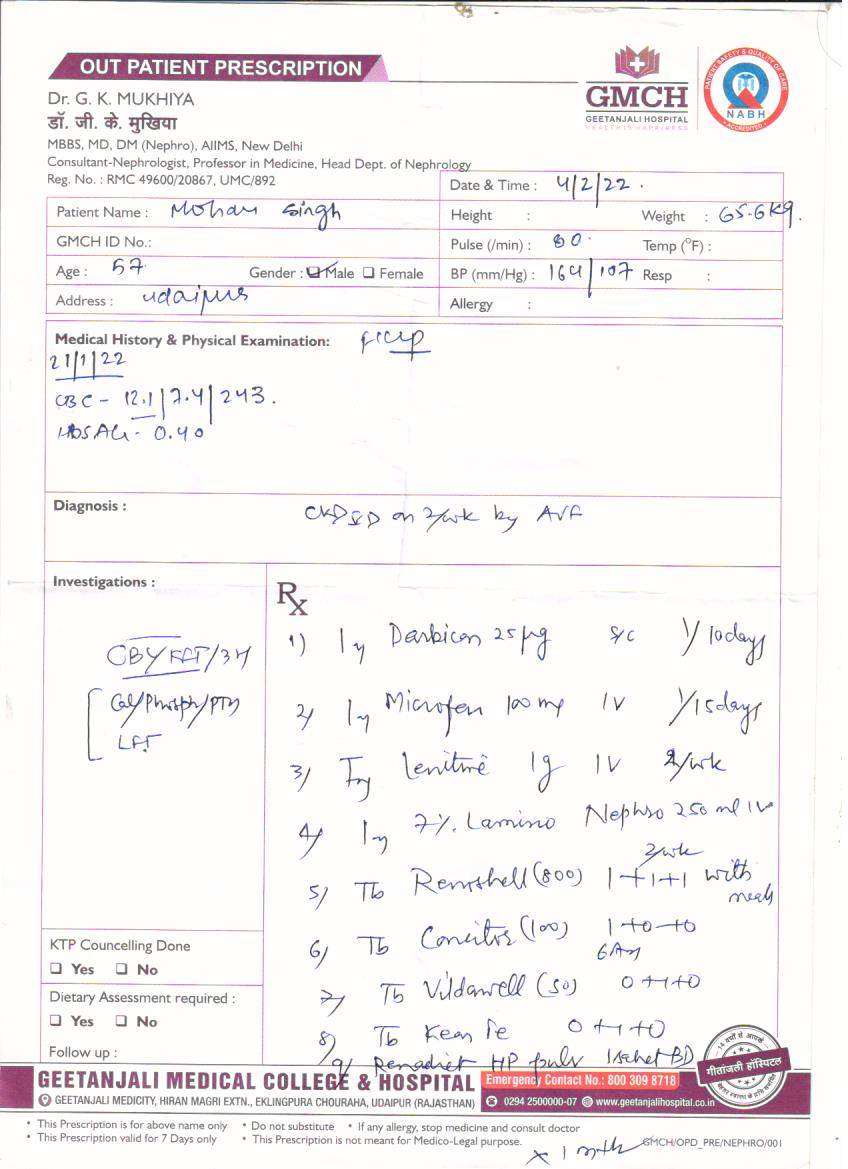 OUT PATIENT PRESCRIPTION
GMCH
GEETANJALI HOSPITAL
HEALTH IS HAPPINESS
PATIENT SAFETY & QUALITY OF CARE
NABH
ACCREDITED
Dr. G. K. MUKHIYA
डॉ. जी. के. मुखिया
MBBS, MD, DM (Nephro), AIIMS, New Delhi
Consultant-Nephrologist, Professor in Medicine, Head Dept. of Nephrology
Reg. No. : RMC 49600/20867, UMC/892
Date & Time : 4/2/22.
Patient Name : Mohan Singh
Height : Weight : 65.6kg.
GMCH ID No.:
Pulse (/min) : 80. Temp (°F) :
Age : 57 Gender : Male Female
BP (mm/Hg) : 164/107 Resp :
Address : udaipur
Allergy :
Medical History & Physical Examination:
21/1/22
CBC - 12.1/7.4/243.
HBSAG - 0.40
Diagnosis : on 2/wk by AVF
Investigations :
Rx
CBC/ /3M
Cal/Phosph/PTH
LFT
1) Inj 25 µg S/C 1/10days
2) Inj Microfen 100 mg IV 1/15days
3) Inj 1g IV 2/wk
4) Inj 7%. Lamino Nephro 250 ml IV
2/wk
5) Tb Renshell (800) 1+1+1 with
meals
6) Tb (100) 1+0+0
6Am
7) Tb Vildawell (50) 0+1+0
8) Tb 0+1+0
9) Renadiet HP pulv 1sachet BD
x 1 mth
KTP Councelling Done
Yes No
Dietary Assessment required :
Yes No
Follow up :
गीतांजली हॉस्पिटल
GEETANJALI MEDICAL COLLEGE & HOSPITAL
Emergency Contact No.: 800 309 8718
GEETANJALI MEDICITY, HIRAN MAGRI EXTN., EKLINGPURA CHOURAHA, UDAIPUR (RAJASTHAN)
0294 2500000-07 www.geetanjalihospital.co.in
• This Prescription is for above name only • Do not substitute • If any allergy, stop medicine and consult doctor
• This Prescription valid for 7 Days only • This Prescription is not meant for Medico-Legal purpose.
GMCH/OPD_PRE/NEPHRO/001